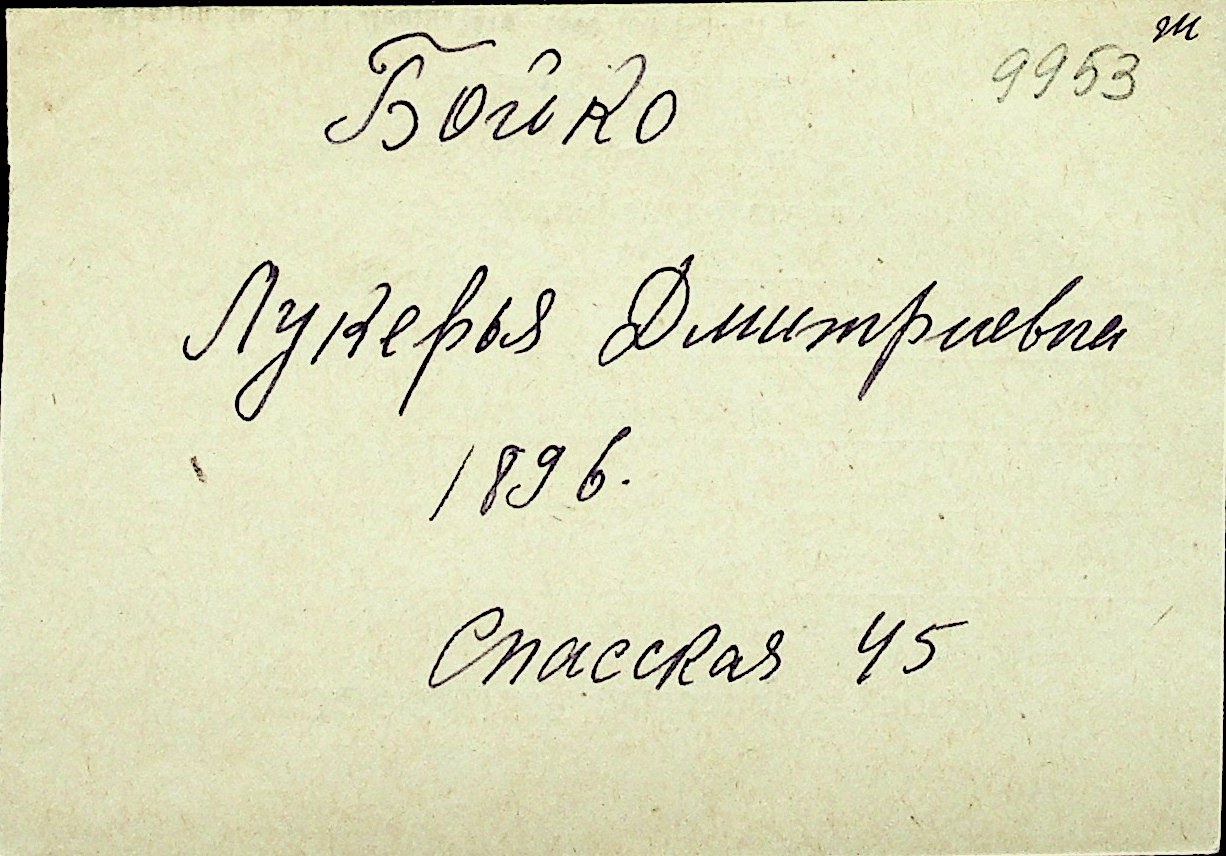 9953
Бойко
Лукерья Дмитриевна
1896.
Спасская 45